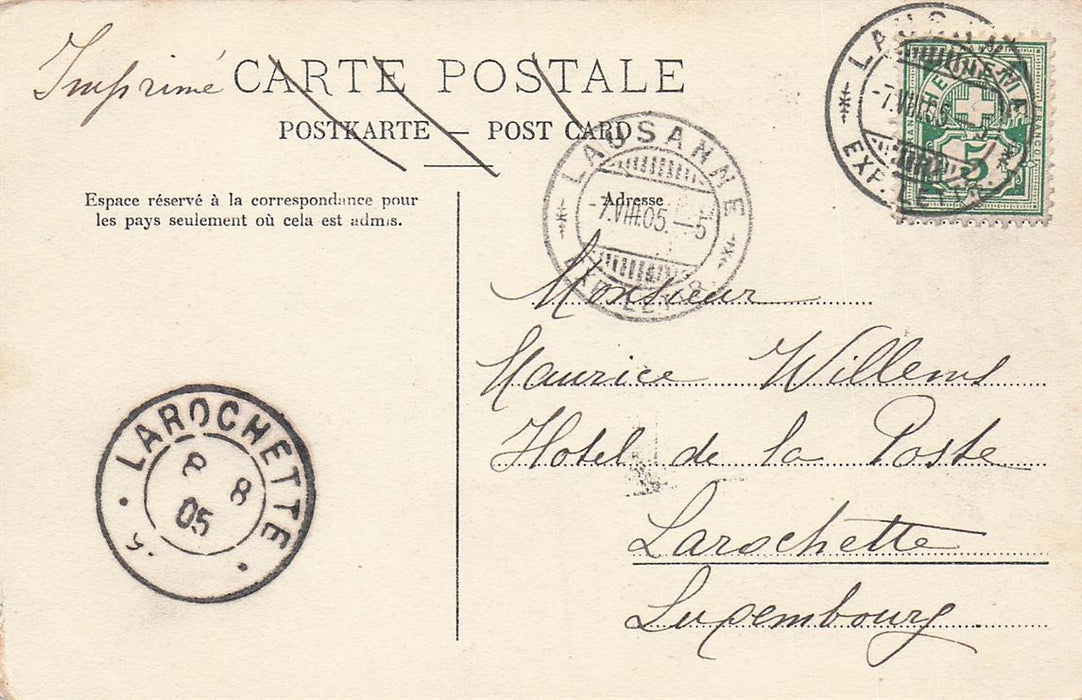 Imprimé
CARTE POSTALE
POSTKARTE — POST CARD
Espace réservé à la correspondance pour
les pays seulement où cela est admis.
Adresse
LAUSANNE
-7.VIII.05.—5
EXP. LETTR.
LAUSANNE
-7.VIII.05.
EXP. LETTR.
FRANCO
5
Monsieur
Maurice Willems
Hotel de la Poste
Larochette
Luxembourg
LAROCHETTE
8 8
05